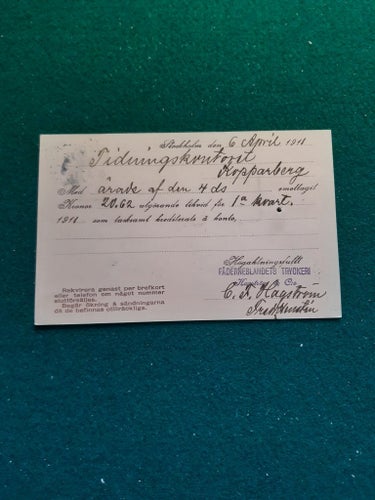 Stockholm den 6 April 1911
Tidningskontoret
Kopparberg
Med ärade af den 4 ds emottaget
Kronor 20.62 utgörande likvid för 1a kvart.
1911 som tacksamt krediterats à konto.
Högaktningsfullt
FÄDERNEBLANDETS TRYCKERI
C. F. Hagström
Rekvirera genast per brefkort
eller telefon om något nummer
slutförsäljes.
Begär ökning å sändningarna
då de befinnas otillräckliga.